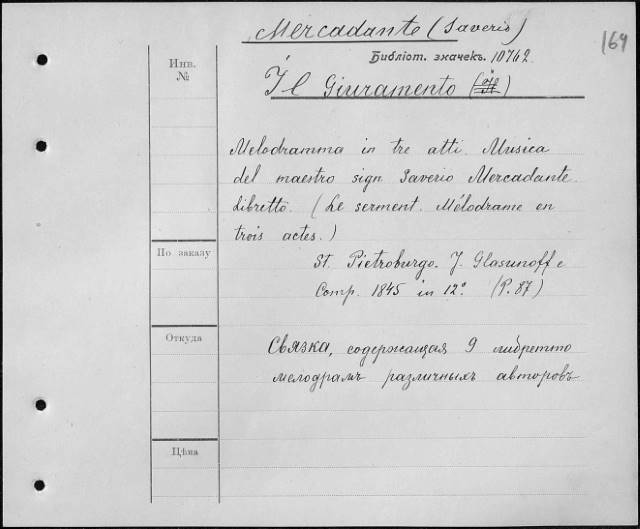 Mercadante (Saverio)
169
Библіот. значекъ. 10762
Инв.
№
Il Giuramento
Melodramma in tre atti. Musica
del maestro sign Saverio Mercadante.
Libretto. (Le serment. Mélodrame en
trois actes.)
По заказу
St. Pietroburgo. J. Glasunoff e
Comp. 1845 in 12° (P. 87)
Откуда
Связка, содержащая 9 либретто
мелодрамъ различныхъ авторовъ
Цѣна